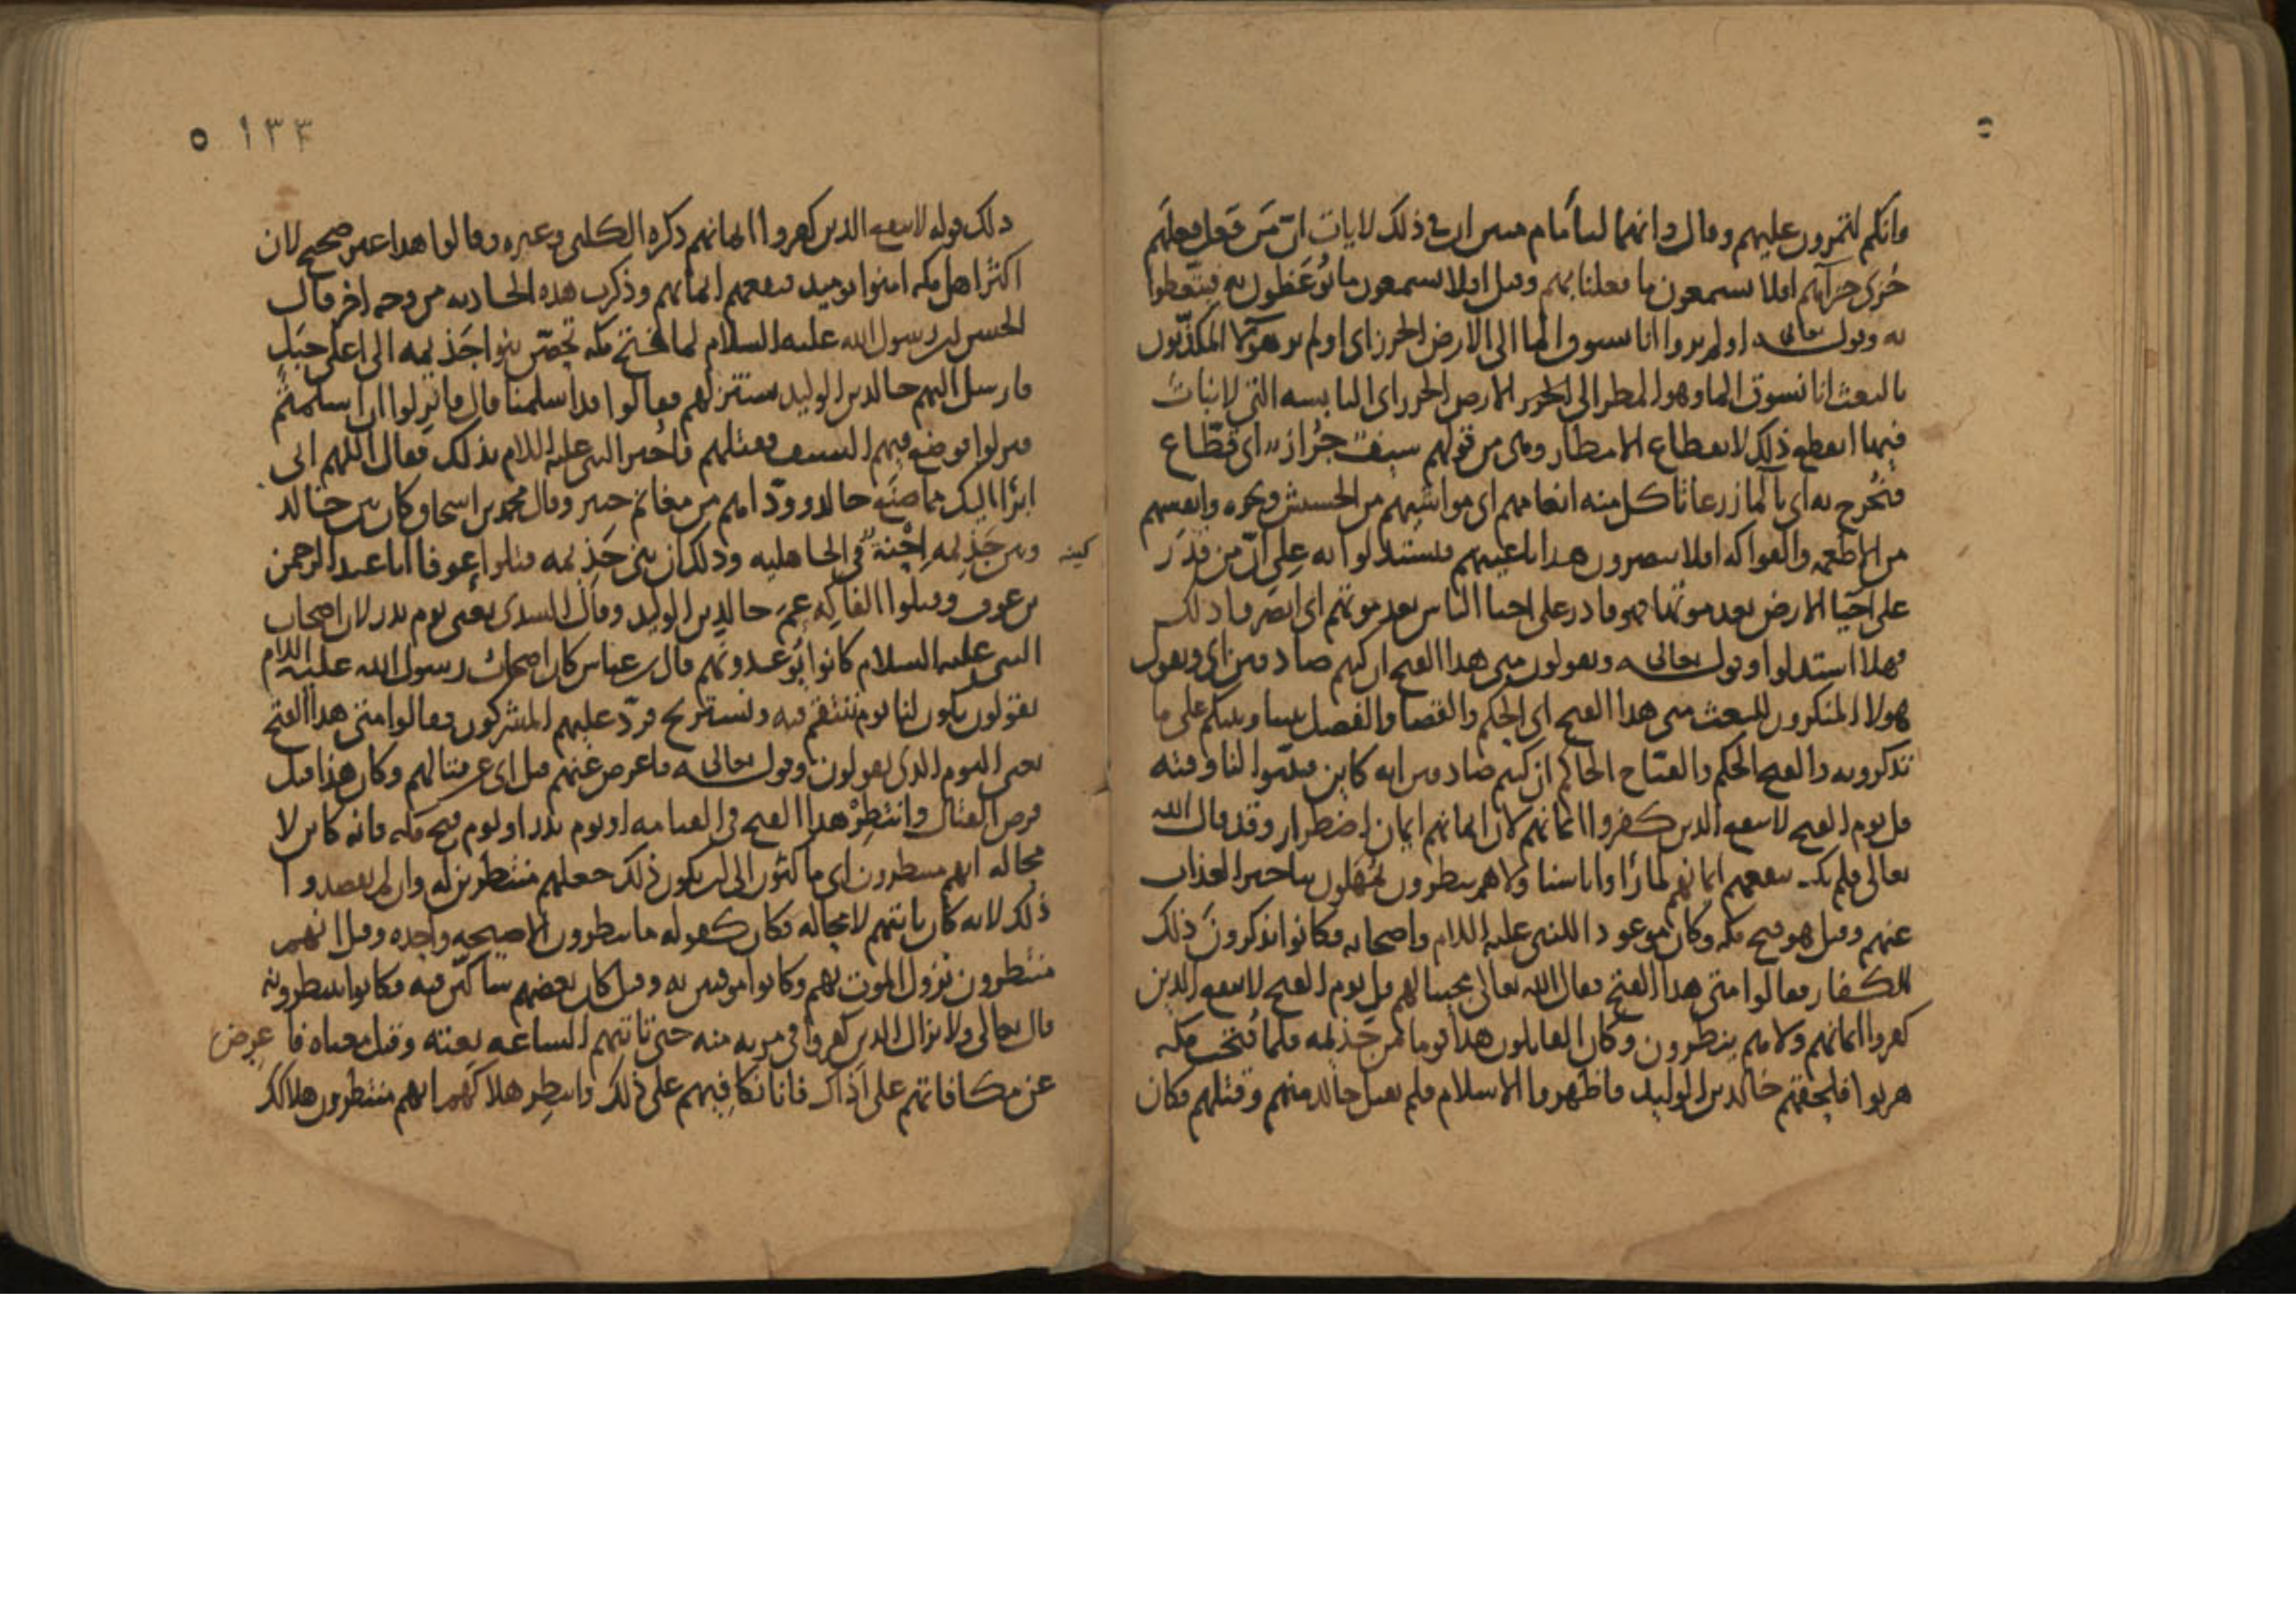 وانكم لتمرون عليهم وقال وانهما لبامام مبين ان في ذلك لايات ان من فعل فعلهم
جزي جزآهم افلا يسمعون ما فعلنا بهم وقيل افلا يسمعون ما يوعظون به فيتعظوا
به وقوله تعالى اولم يروا انا نسوق الما الى الارض الجرز اي اولم ير هولا المكذبون
بالبعث انا نسوق الما وهو المطر الى الجرز الارض الجرز اي اليابسه التي لا نبات
فيها انقطع ذلك لانقطاع الامطار وهي من قولهم سيف جراز اي قطاع
فنخرج به اي بالما زرعا تاكل منه انعامهم اي مواشيهم من الحشيش ونحوه وانفسهم
من الاطعمه والفواكه افلا يبصرون هذا باعينهم فيستدلوا به على ان من قدر
على احيا الارض بعد موتها فهو قادر على احيا الناس بعد موتهم اي ابصروا ذلك
فهلا استدلوا وقوله تعالى ويقولون متى هذا الفتح ان كنتم صادقين اي ويقول
هولا المنكرون للبعث متى هذا الفتح اي الحكم والقضا والفصل بيننا وبينكم على ما
تذكرونه والفتح الحكم والفتاح الحاكم ان كنتم صادقين انه كاين فبينوا لنا وقته
قل يوم الفتح لا ينفع الذين كفروا ايمانهم لان ايمانهم ايمان اضطرار وقد قال الله
تعالى فلم يك ينفعهم ايمانهم لما راوا باسنا ولا هم ينظرون يمهلون بتاخير العذاب
عنهم وقيل هو فتح مكه وكان موعودا للنبي عليه السلام واصحابه فكانوا يذكرون ذلك
للكفار فقالوا متى هذا الفتح فقال الله تعالى مجيبا لهم قل يوم الفتح لا ينفع الذين
كفروا ايمانهم ولا هم ينظرون وكان القايلون هذا قوما من جذيمه فلما فتحت مكه
هربوا فلحقهم خالد بن الوليد فاظهروا الاسلام فلم يقبل خالد منهم وقتلهم فكان
١٣٣ ٥
ذلك قوله لا ينفع الذين كفروا ايمانهم ذكره الكلبي وغيره وقالوا هذا غير صحيح لان
اكثر اهل مكه امنوا يوميذ فنفعهم ايمانهم وذكرت هذه الحادثه من وجه اخر فقال
الحسن ان رسول الله عليه السلام لما فتح مكه تحصن بنوا جذيمه الى اعلى جبل
فارسل اليهم خالد بن الوليد يستنزلهم فقالوا قد اسلمنا قال فانزلوا ان اسلمتم
فنزلوا فوضع فيهم السيف فقتلهم فاخبر النبي عليه السلام بذلك فقال اللهم اني
ابرا اليك مما صنع خالد وودّاهم من مغانم حنين وقال محمد بن اسحاق وكان بين خالد
وبين جذيمه اِحْنة في الجاهليه وذلك ان بني جذيمه قتلوا عوفا ابا عبد الرحمن
بن عوف وقتلوا الفاكه عم خالد بن الوليد وقال السدي يعني يوم بدر لان اصحاب
النبي عليه السلام كانوا يوعدونهم قال بن عباس كان اصحاب رسول الله عليه السلام
يقولون يكون لنا يوم ننتقم فيه ونستريح فردّ عليهم المشركون فقالوا متى هذا الفتح
يعني اليوم الذي يقولون وقوله تعالى فاعرض عنهم قيل اي عن قتالهم وكان هذا قبل
فرض القتال وانتظر هذا الفتح في القيامه او يوم بدر او يوم فتح مكه فانه كاين لا
محاله انهم منتظرون اي ماكثون الى ان يكون ذلك جعلهم منتظرين له وان لم يقصدوا
ذلك لانه كان ياتيهم لا محاله فكان كقوله ما ينظرون الا صيحه واحده وقيل انهم
منتظرون نزول الموت بهم وكانوا موقنين به وقيل كان بعضهم شاكين فيه فكانوا ينتظرونه
قال تعالى ولا يزال الذين كفروا في مريه منه حتى تاتيهم الساعه بغته وقيل معناه فاعرض
عن مكافاتهم على اذاك فانا نكافيهم على ذلك وانتظر هلاكهم انهم منتظرون هلاكك